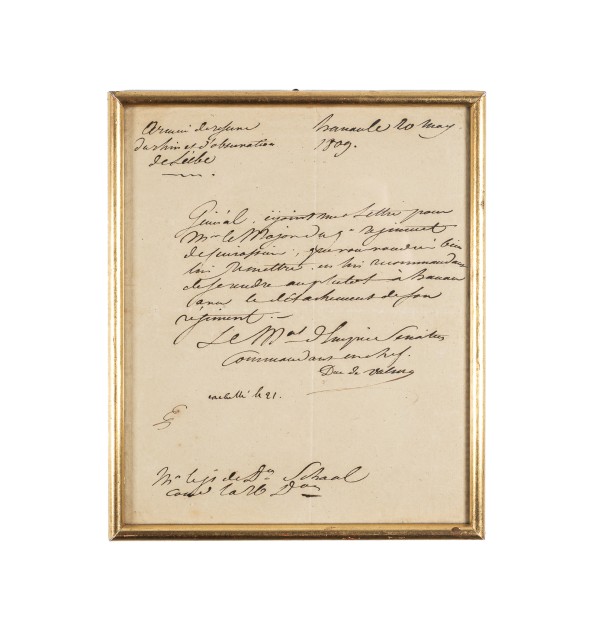 Armée de reserve
du rhin et d'observation
de L'elbe
hanau le 20 may
1809.
Général, cijoint une Lettre pour
Mr le Major du 9e regiment
de cuirassiers, que vous voudrés bien
lui remettre, en lui recommandant
de se rendre au plutot à hanau
avec le détachement de son
régiment.
Le Mal d'Empire Senateur
Commandant en chef.
Duc de Valmy
le 21.
Mr le gl de Don Schaal
Comt la 26 Don